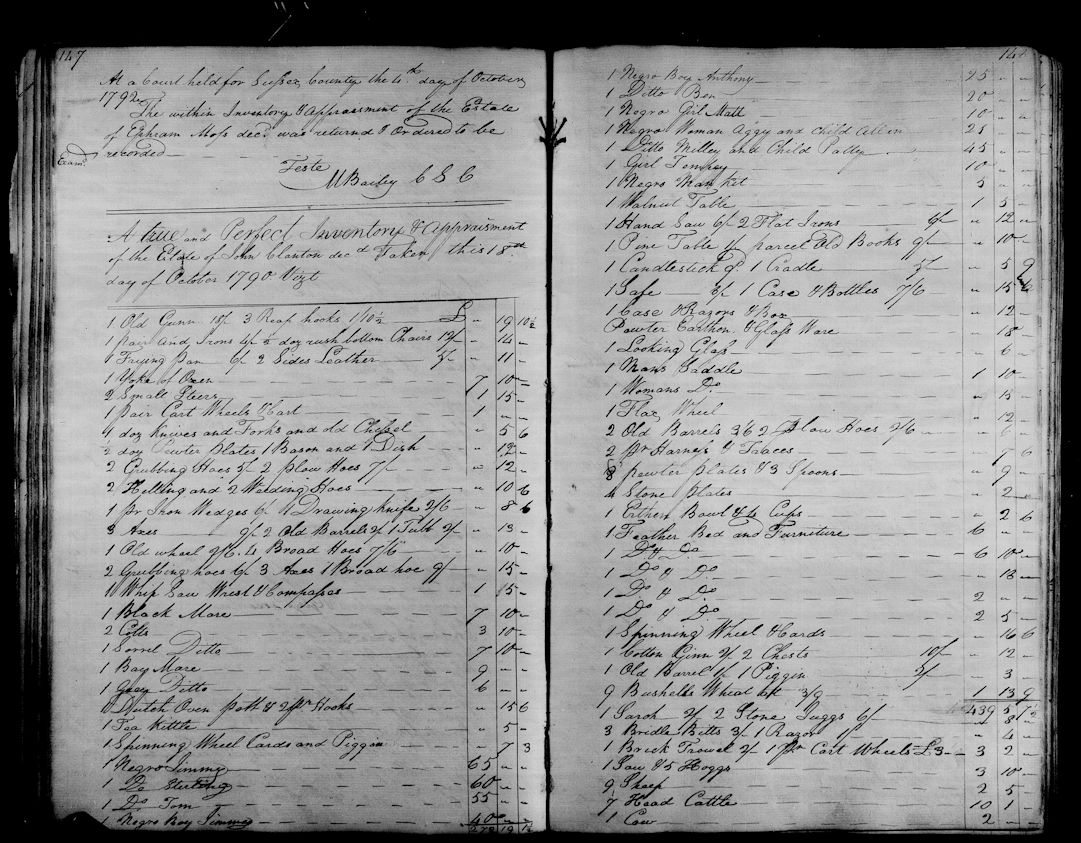 147
At a Court held for Sussex County the 4th day of October
1792
The within Inventory & Appraisment of the Estate
of Ephram Moss decd was returnd & Ordered to be
recorded
Examd
Teste
MBailey C S C
A true and Perfect Inventory & Appraisment
of the Estate of John Clanton decd Taken this 18
day of October 1790 Vizt
1 Old Gunn 18/ 3 Reap hooks 1/10½ £ " 19 10½
1 pair and Irons 6/ ½ doz rush bottom Chairs 12/ " 14 "
1 Frying pan 6/ 2 Sides Leather 5/ " 11 "
1 Yoke of Oxen 7 10 "
2 Small Steers 1 15 "
1 pair Cart Wheels & Cart 1 " "
1 doz Knives and Forks and old Chissel " 5 6
½ doz Pewter plates 1 Bason and 1 Dish " 12 "
2 Grubbing Hoes 5/ 2 plow Hoes 7/ " 12 "
2 Helling and 2 Weeding Hoes " 10 6
1 pr Iron Wedges 6/ 1 Drawing knife 2/6 " 8 6
3 Axes 9/ 2 Old Barrels 2/ 1 Tubb 2/ " 13 "
1 Old wheel 2/6. 4 Broad Hoes 7/6 " 10 "
2 Grubbing hoes 6/ 3 Axes 1 Broad hoe 9/ " 15 "
1 Whip Saw Wrest & Compasses 1 15 "
1 Black Mare 7 10 "
2 Colts 3 10 "
1 Sorrel Ditto 7 10 "
1 Bay Mare 9 " "
1 Gray Ditto 6 " "
Dutch Oven poth & 2 pr Hooks " 15 6
1 Tea Kittle " 5 "
1 Spinning Wheel Cards and Piggin " 7 3
1 Negro Jimmy 65 " "
1 Do Sterling 60 " "
1 Do Tom 55 " "
1 Negro Boy Simmes 40 " "
1 Negro Boy Anthony 25 " "
1 Ditto Ben 20 " "
1 Negro Girl Matt 10 " "
1 Negro Woman Aggy and Child 25 " "
1 Ditto Milley and Child Patty 45 " "
1 Girl Tempey 10 " "
1 Negro Man 5 " "
1 Walnut Table 1 5 "
1 Hand Saw 6/ 2 Flat Irons 6/ " 12 "
1 Pine Table parcel Old Books 9/ " 10 "
1 Candlestick 1 Cradle 5/ " 5 9
1 Safe 1 Case & Bottles 7/6 " 15 6
1 Case & Razors & Box " 12 "
Pewter Earthen & Glass Ware " 18 "
1 Looking Glass " 6 "
1 Mans Saddle 1 10 "
1 Womans Do " 15 "
1 Flax Wheel " 12 "
2 Old Barrels 3/6 2 Plow Hoes 2/6 " 6 "
2 pr Harness & Traces " 7 6
8 pewter plates & 3 Spoons " 9 "
4 Stone plates " 2 "
1 Erthen Bowl & 4 Cups " 2 6
1 Feather Bed and Furniture 6 " "
1 Do & Do 6 10 "
1 Do & Do " 18 "
1 Do & Do 2 " "
1 Do & Do 2 5 "
1 Spinning Wheel & Cards " 16 6
1 Cotton Ginn 2/ 2 Chests 10/ " 12 "
1 Old Barrel 1/ 1 Piggin 2/ " 3 "
9 Bushells Wheat at 3/9 1 13 9
439 5 7½
1 Jarsh 2/ 2 Stone Juggs 6/ " 8 "
3 Bridle Bitts 3/ 1 Razor 1/ " 4 "
1 Brick Trowel 2/ 1 pr Cart Wheels £3 3 2 "
1 Sow & 5 Hoggs 3 10 "
9 Sheep 2 5 "
7 Head Cattle 10 1 "
1 Cow 2 " "